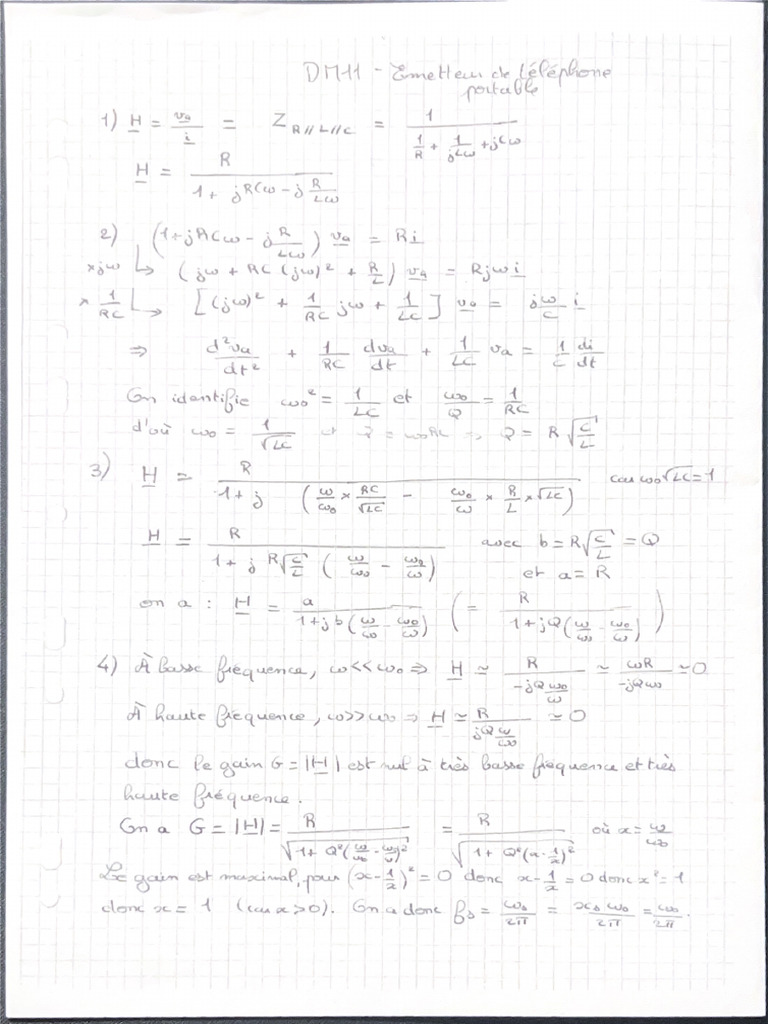 DM11 - Emetteur de téléphone
portable
1) H = va/i = Z R//L//C = 1/(1/R + 1/jLω + jCω)
H = R/(1 + jRCω - j R/Lω)
2) (1+jRCω - j R/Lω) va = Ri
×jω ↳ (jω + RC(jω)² + R/L) va = Rjωi
× 1/RC ↳ [(jω)² + 1/RC jω + 1/LC] va = jω/C i
⇒ d²va/dt² + 1/RC dva/dt + 1/LC va = 1/C di/dt
On identifie ω0² = 1/LC et ω0/Q = 1/RC
d'où ω0 = 1/√LC et Q = ω0RC ⇒ Q = R√(C/L)
3) H = R/(1 + j (ω/ω0 × RC/√LC - ω0/ω × R/L × √LC)) car ω0√LC=1
H = R/(1 + j R√(C/L) (ω/ω0 - ω0/ω)) avec b = R√(C/L) = Q
et a = R
on a : H = a/(1+jb(ω/ω0 - ω0/ω)) (= R/(1+jQ(ω/ω0 - ω0/ω)))
4) À basse fréquence, ω<<ω0 ⇒ H ≃ R/(-jQ ω0/ω) ≃ ωR/(-jQω0) ≃ 0
À haute fréquence, ω>>ω0 ⇒ H ≃ R/(jQ ω/ω0) ≃ 0
donc le gain G = |H| est nul à très basse fréquence et très
haute fréquence.
On a G = |H| = R/√(1+ Q²(ω/ω0 - ω0/ω)²) = R/√(1 + Q²(x-1/x)²) où x = ω/ω0
Le gain est maximal, pour (x-1/x)² = 0 donc x-1/x = 0 donc x² = 1
donc x = 1 (car x>0). On a donc fs = ωs/2π = xs ω0/2π = ω0/2π.